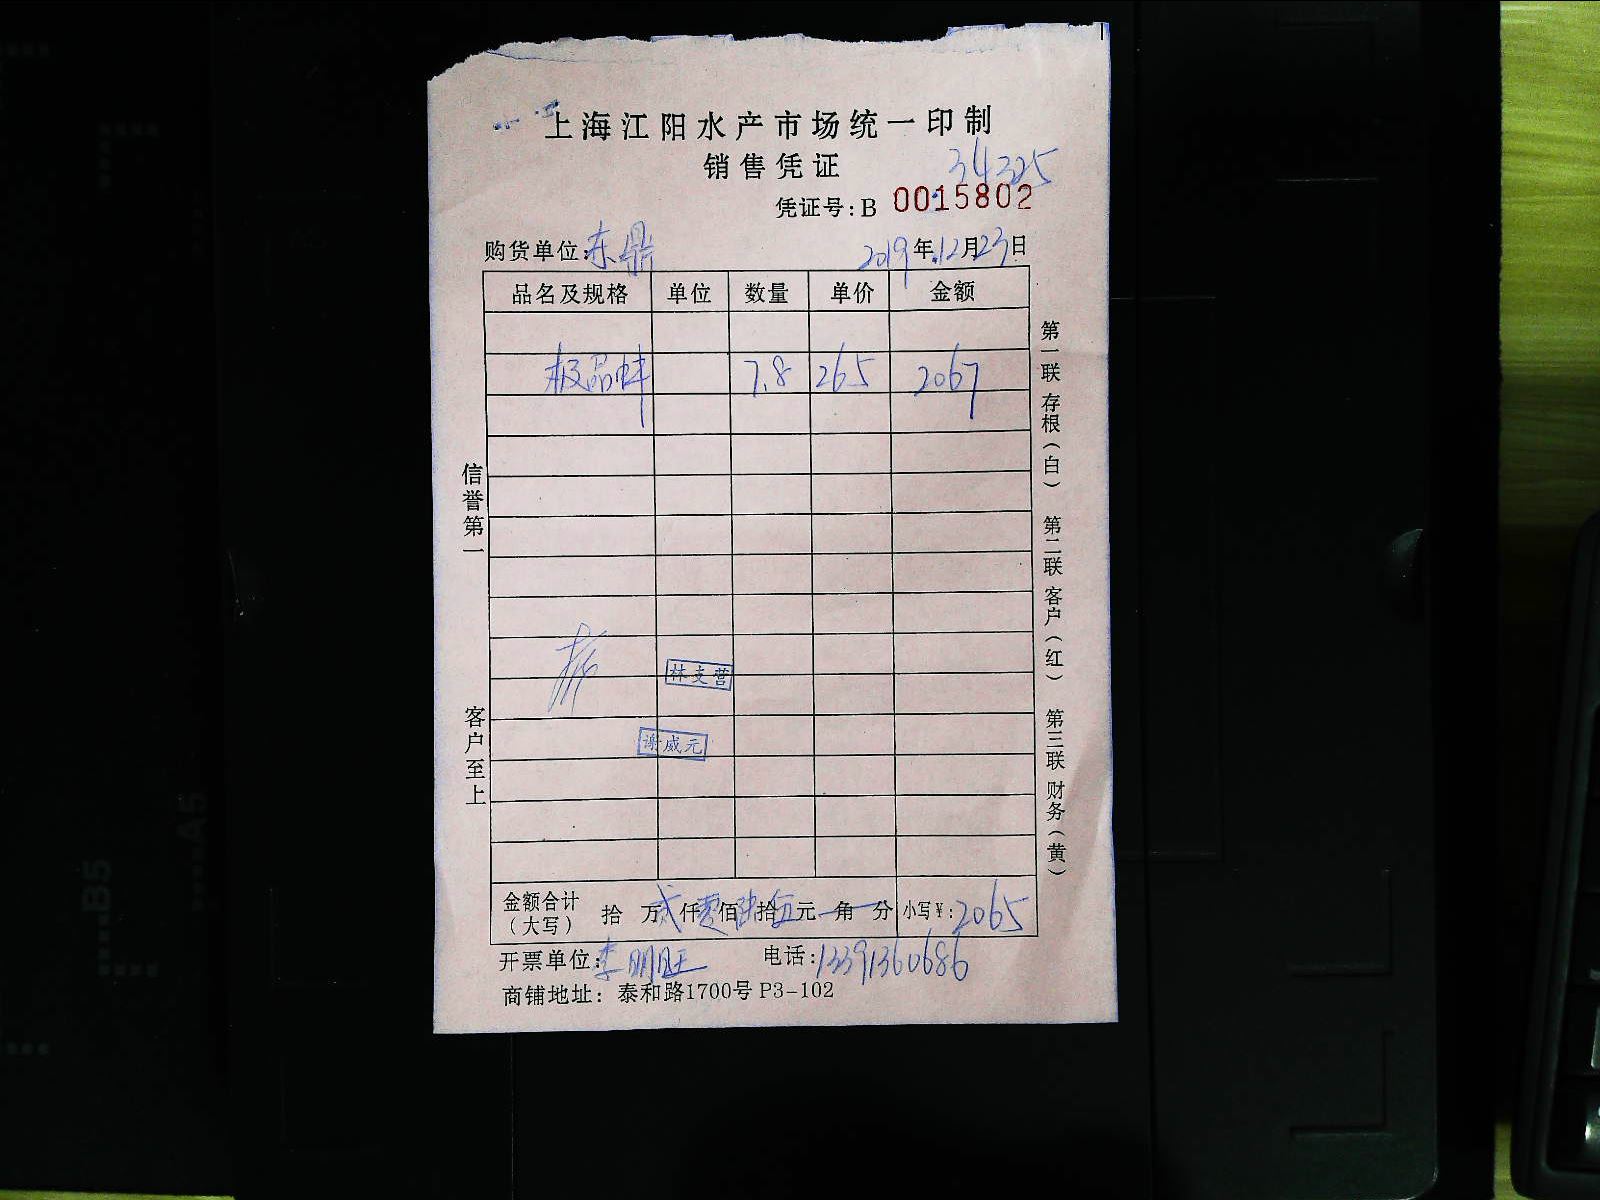 上海江阳水产市场统一印制
销售凭证
34325
凭证号:B 0015802
购货单位:东鼎 2019年12月23日
品名及规格 单位 数量 单价 金额
极品蚌 7.8 265 2067
林支营
谢威元
金额合计(大写) 拾 万贰仟零佰陆拾伍元 角 分 小写¥:2065
开票单位:李明旺 电话:13391360686
商铺地址:泰和路1700号 P3-102
信誉第一
客户至上
第一联 存根(白) 第二联 客户(红) 第三联 财务(黄)
B5
A5